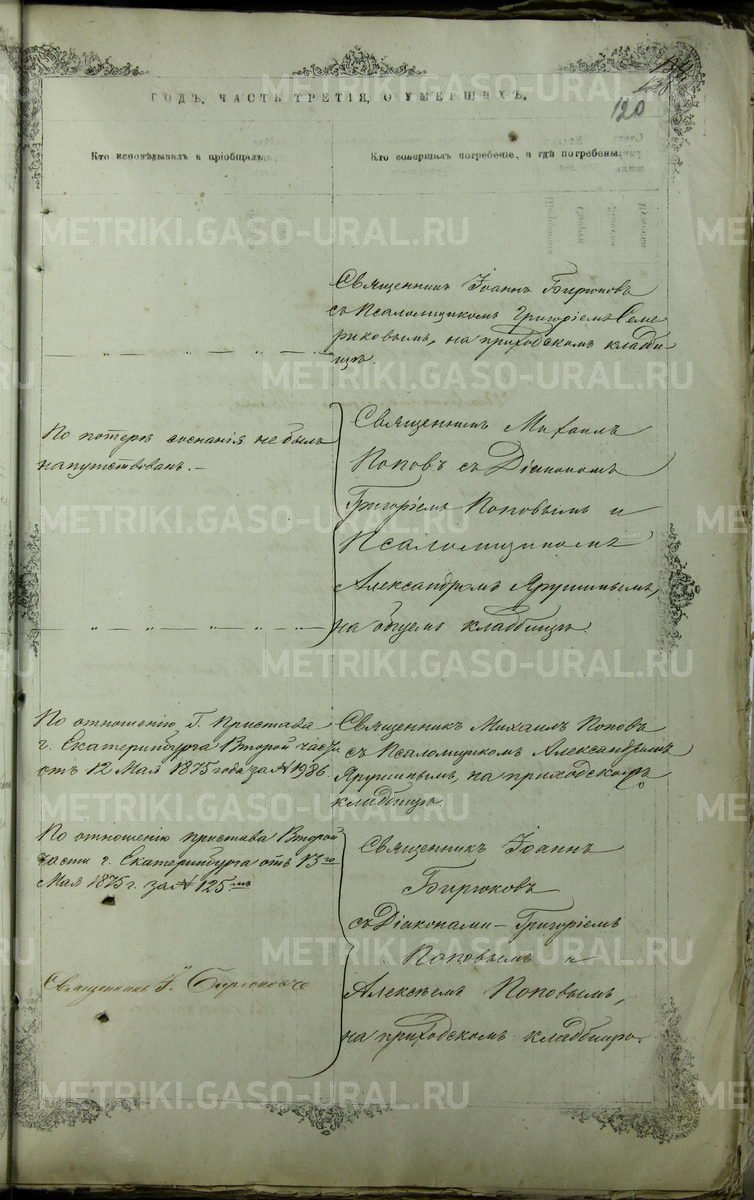 ГОДЪ, ЧАСТЬ ТРЕТІЯ, О УМЕРШИХЪ.
120
Кто исповѣдывалъ и пріобщалъ.
Кто совершалъ погребеніе, и гдѣ погребены.
Священникъ Іоаннъ Бирюковъ
съ Псаломщикомъ Григоріемъ Семе
риковымъ, на приходскомъ кладби
щѣ.
По потерѣ сознанія не былъ
напутствованъ.
Священникъ Михаилъ
Поповъ съ Діакономъ
Григоріемъ Поповымъ и
Псаломщикомъ
Александромъ Ярушинымъ,
на общемъ кладбищѣ.
По отношенію Г. Пристава
г. Екатеринбурга Второй части
отъ 12 Мая 1875 года за № 1986.
Священникъ Михаилъ Поповъ
съ Псаломщикомъ Александромъ
Ярушинымъ, на приходскомъ
кладбищѣ.
По отношенію пристава Второй
части г. Екатеринбурга отъ 13го
Мая 1875 г. за № 125
Священникъ Іоаннъ
Бирюковъ
съ Діаконами - Григоріемъ
Поповымъ и
Алексѣемъ Поповымъ,
на приходскомъ кладбищѣ.
Священникъ І. Бирюковъ
METRIKI.GASO-URAL.RU
METRIKI.GASO-URAL.RU
METRIKI.GASO-URAL.RU
METRIKI.GASO-URAL.RU
METRIKI.GASO-URAL.RU
METRIKI.GASO-URAL.RU
METRIKI.GASO-URAL.RU
METRIKI.GASO-URAL.RU